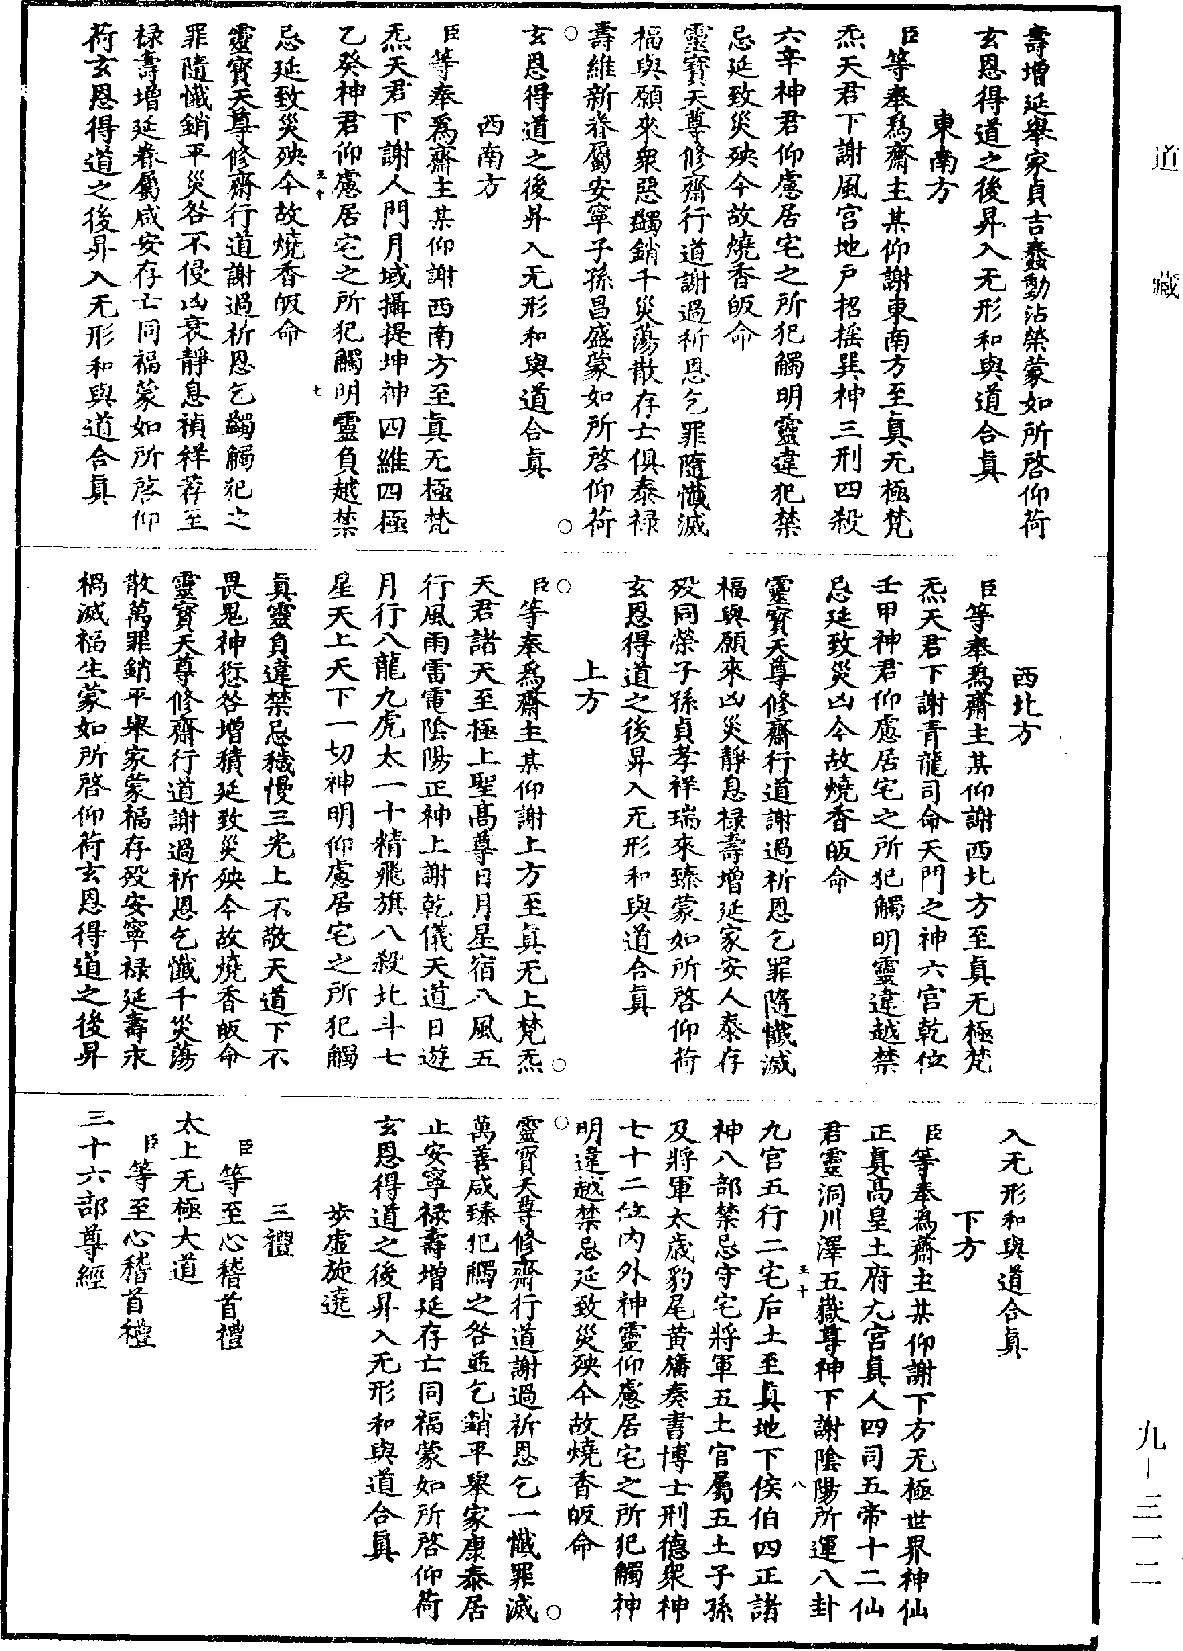 道藏
壽增延舉家貞吉蠢動沾榮蒙如所啓仰荷
玄恩得道之後昇入无形和與道合眞
東南方
臣等奉爲齋主某仰謝東南方至眞无極梵
炁天君下謝風宫地户招摇巽神三刑四殺
六辛神君仰慮居宅之所犯觸明靈違犯禁
忌延致災殃今故燒香皈命
靈寶天尊修齋行道謝過祈恩乞罪隨懺滅
福與願來衆惡蠲銷千災蕩散存亡俱泰禄
壽維新眷屬安寧子孫昌盛蒙如所啓仰荷
玄恩得道之後昇入无形和與道合眞
西南方
臣等奉爲齋主某仰謝西南方至眞无極梵
炁天君下謝人門月域攝提坤神四維四極
乙癸神君仰慮居宅之所犯觸明靈負越禁
五十
七
忌延致災殃今故燒香皈命
靈寶天尊修齋行道謝過祈恩乞蠲觸犯之
罪隨懺銷平災咎不侵凶衰靜息禎祥荐至
禄壽增延眷屬咸安存亡同福蒙如所啓仰
荷玄恩得道之後昇入无形和與道合眞
西北方
臣等奉爲齋主某仰謝西北方至眞无極梵
炁天君下謝青龍司命天門之神六宫乾位
壬甲神君仰慮居宅之所犯觸明靈違越禁
忌延致災凶今故燒香皈命
靈寶天尊修齋行道謝過祈恩乞罪隨懺滅
福與願來凶災靜息禄壽增延家安人泰存
殁同榮子孫貞孝祥瑞來臻蒙如所啓仰荷
玄恩得道之後昇入无形和與道合眞
上方
臣等奉爲齋主某仰謝上方至眞无上梵炁
天君諸天至極上聖高尊日月星宿八風五
行風雨雷電陰陽正神上謝乾儀天道日遊
月行八龍九虎太一十精飛旗八殺北斗七
星天上天下一切神明仰慮居宅之所犯觸
眞靈負違禁忌穢慢三光上不敬天道下不
畏鬼神愆咎增積延致災殃今故燒香皈命
靈寶天尊修齋行道謝過祈恩乞懺千災蕩
散萬罪銷平舉家蒙福存殁安寧禄延壽永
禍滅福生蒙如所啓仰荷玄恩得道之後昇
入无形和與道合眞
下方
臣等奉爲齋主某仰謝下方无極世界神仙
正眞高皇土府九宫眞人四司五帝十二仙
君靈洞川澤五嶽尊神下謝陰陽所運八卦
五十
八
九宫五行二宅后土至眞地下侯伯四正諸
神八部禁忌守宅將軍五土官屬五土子孫
及將軍太歲豹尾黄旛奏書博士刑德衆神
七十二位内外神靈仰慮居宅之所犯觸神
明違越禁忌延致災殃今故燒香皈命
靈寶天尊修齋行道謝過祈恩乞一懺罪滅
萬善咸臻犯觸之咎並乞銷平舉家康泰居
止安寧禄壽增延存亡同福蒙如所啓仰荷
玄恩得道之後昇入无形和與道合眞
步虚旋遶
三禮
臣等至心稽首禮
太上无極大道
臣等至心稽首禮
三十六部尊經
九—三一二